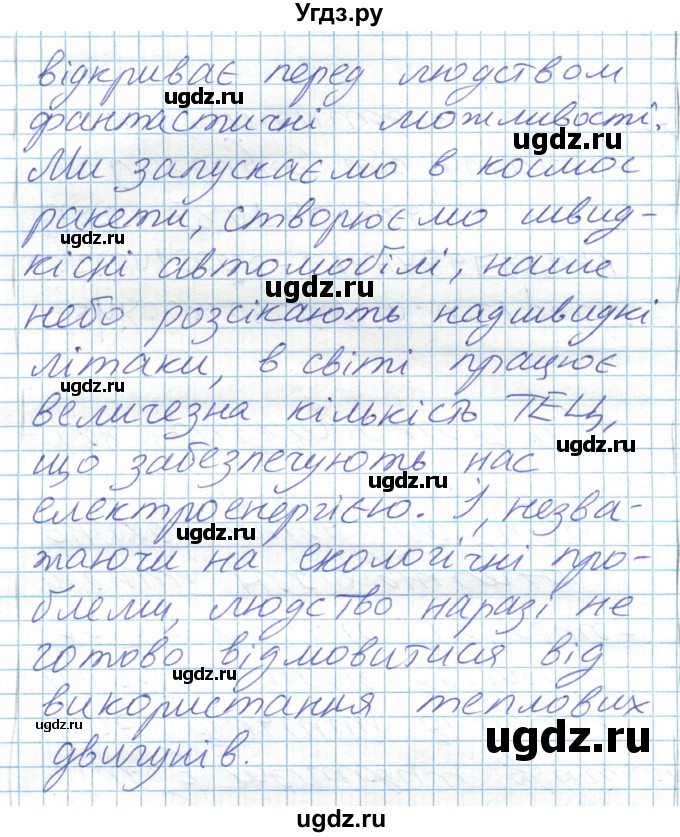 Угдз.ру
відкриває перед людством
ugdz.ru
фантастичні можливості.
ugdz.ru
Ми запускаємо в космос
ракети, створюємо швид-
ugdz.ru
кісні автомобілі, наше
ugdz.ru
небо розсікають надшвидкі
літаки, в світі працює
ugdz.ru
величезна кількість ТЕЦ,
що забезпечують нас
ugdz.ru
електроенергією. І, незва-
ugdz.ru
жаючи на екологічні про-
блеми, людство наразі не
готово відмовитися від
ugdz.ru
використання теплових
ugdz.ru
двигунів.
ugdz.ru
ugdz.ru